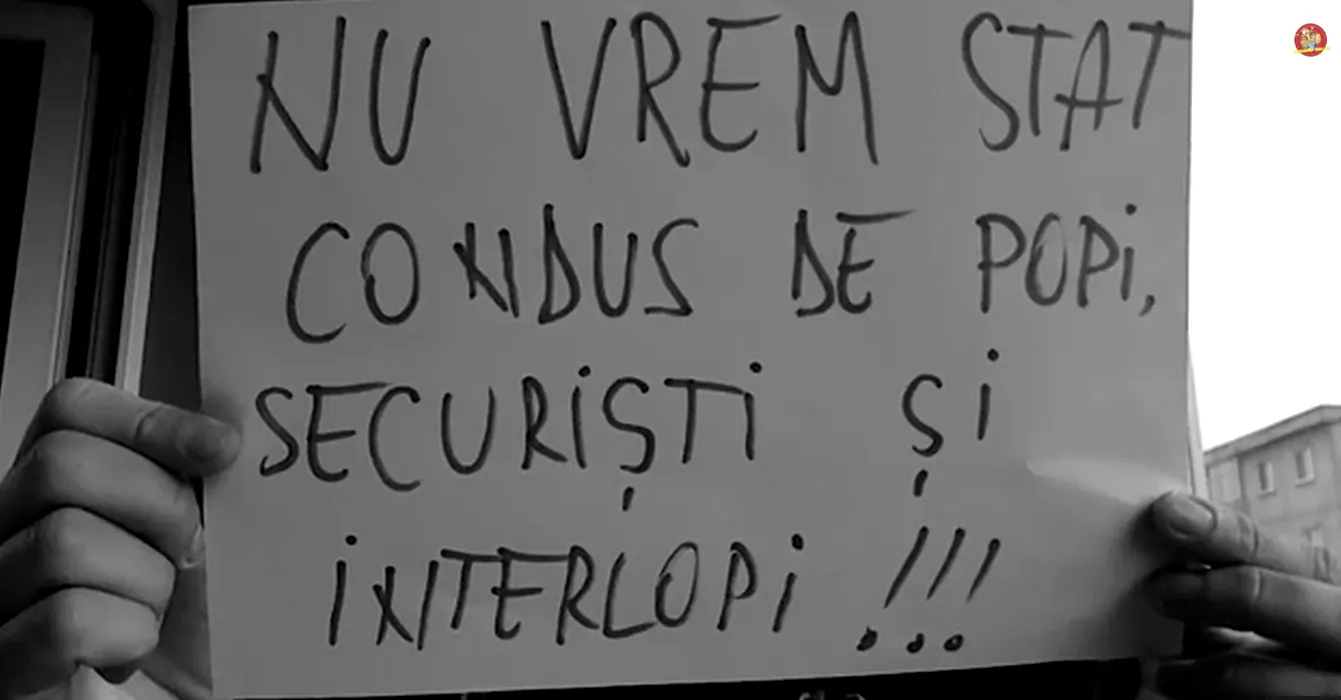 NU VREM STAT
CONDUS DE POPi,
SECURiȘTi Și
iNTERLOPi !!!